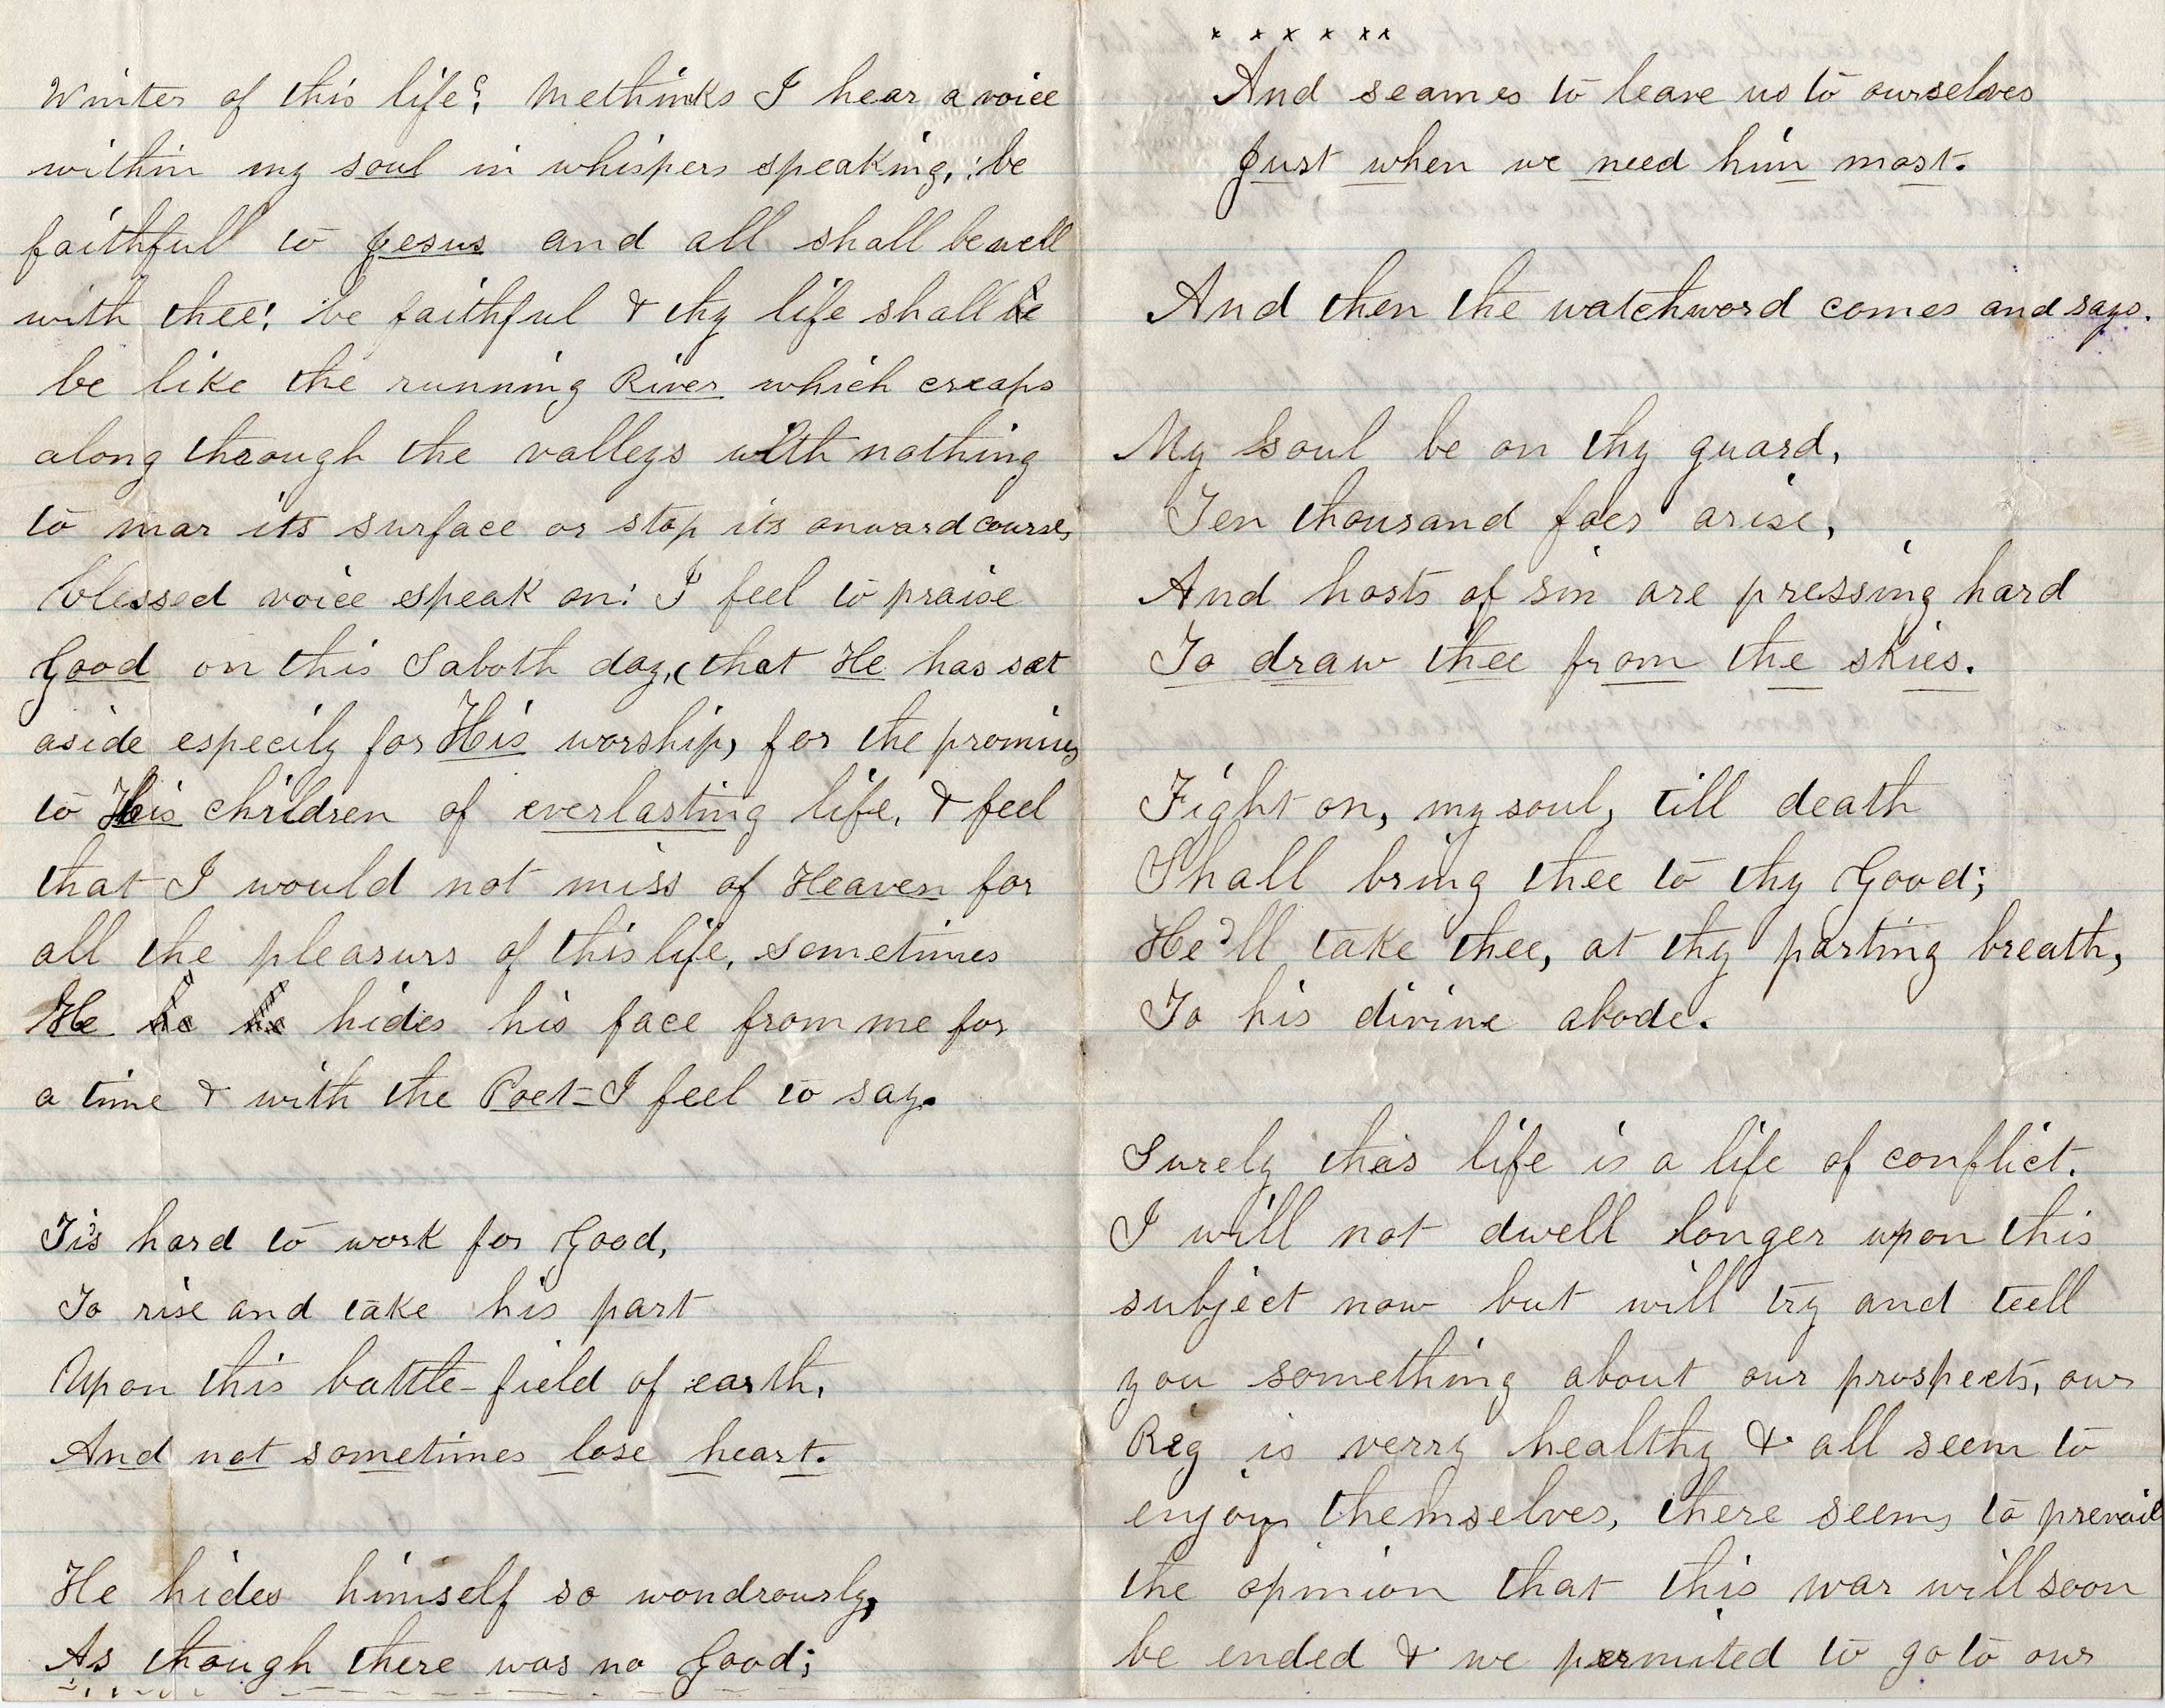 Winter of this life? Methinks I hear a voice
within my soul in whispers speaking, : be
faithfull to Jesus and all shall be well
with thee! be faithful & thy life shall be
be like the running River which creaps
along through the valleys with nothing
to mar its surface or stop its onward course,
blessed voice speak on: I feel to praise
Good on this Saboth day, (that He has set
aside especily for His worship, for the promises
to His children of everlasting life, & feel
that I would not miss of Heaven for
all the pleasurs of this life, sometimes
He he he hides his face from me for
a time & with the Poet- I feel to say.
Ti's hard to work for Good,
To rise and take his part
Upon this battle-field of earth,
And not sometimes lose heart.
He hides himself so wondrously,
As though there was no Good;
x x x x x x
And seames to leave us to ourselves
Just when we need him most.
And then the watchword comes and says.
My soul be on thy guard,
Ten thousand foes arise,
And hosts of sin are pressing hard
To draw thee from the skies.
Fight on, my soul, till death
Shall bring thee to thy Good;
He'll take thee, at thy parting breath,
To his divine abode.
Surely this life is a life of conflict.
I will not dwell longer upon this
subject now but will try and teell
you something about our prospects, our
Reg is verry healthy & all seem to
enjoy themselves, there seems to prevail
the opinion that this war will soon
be ended & we permited to go to our